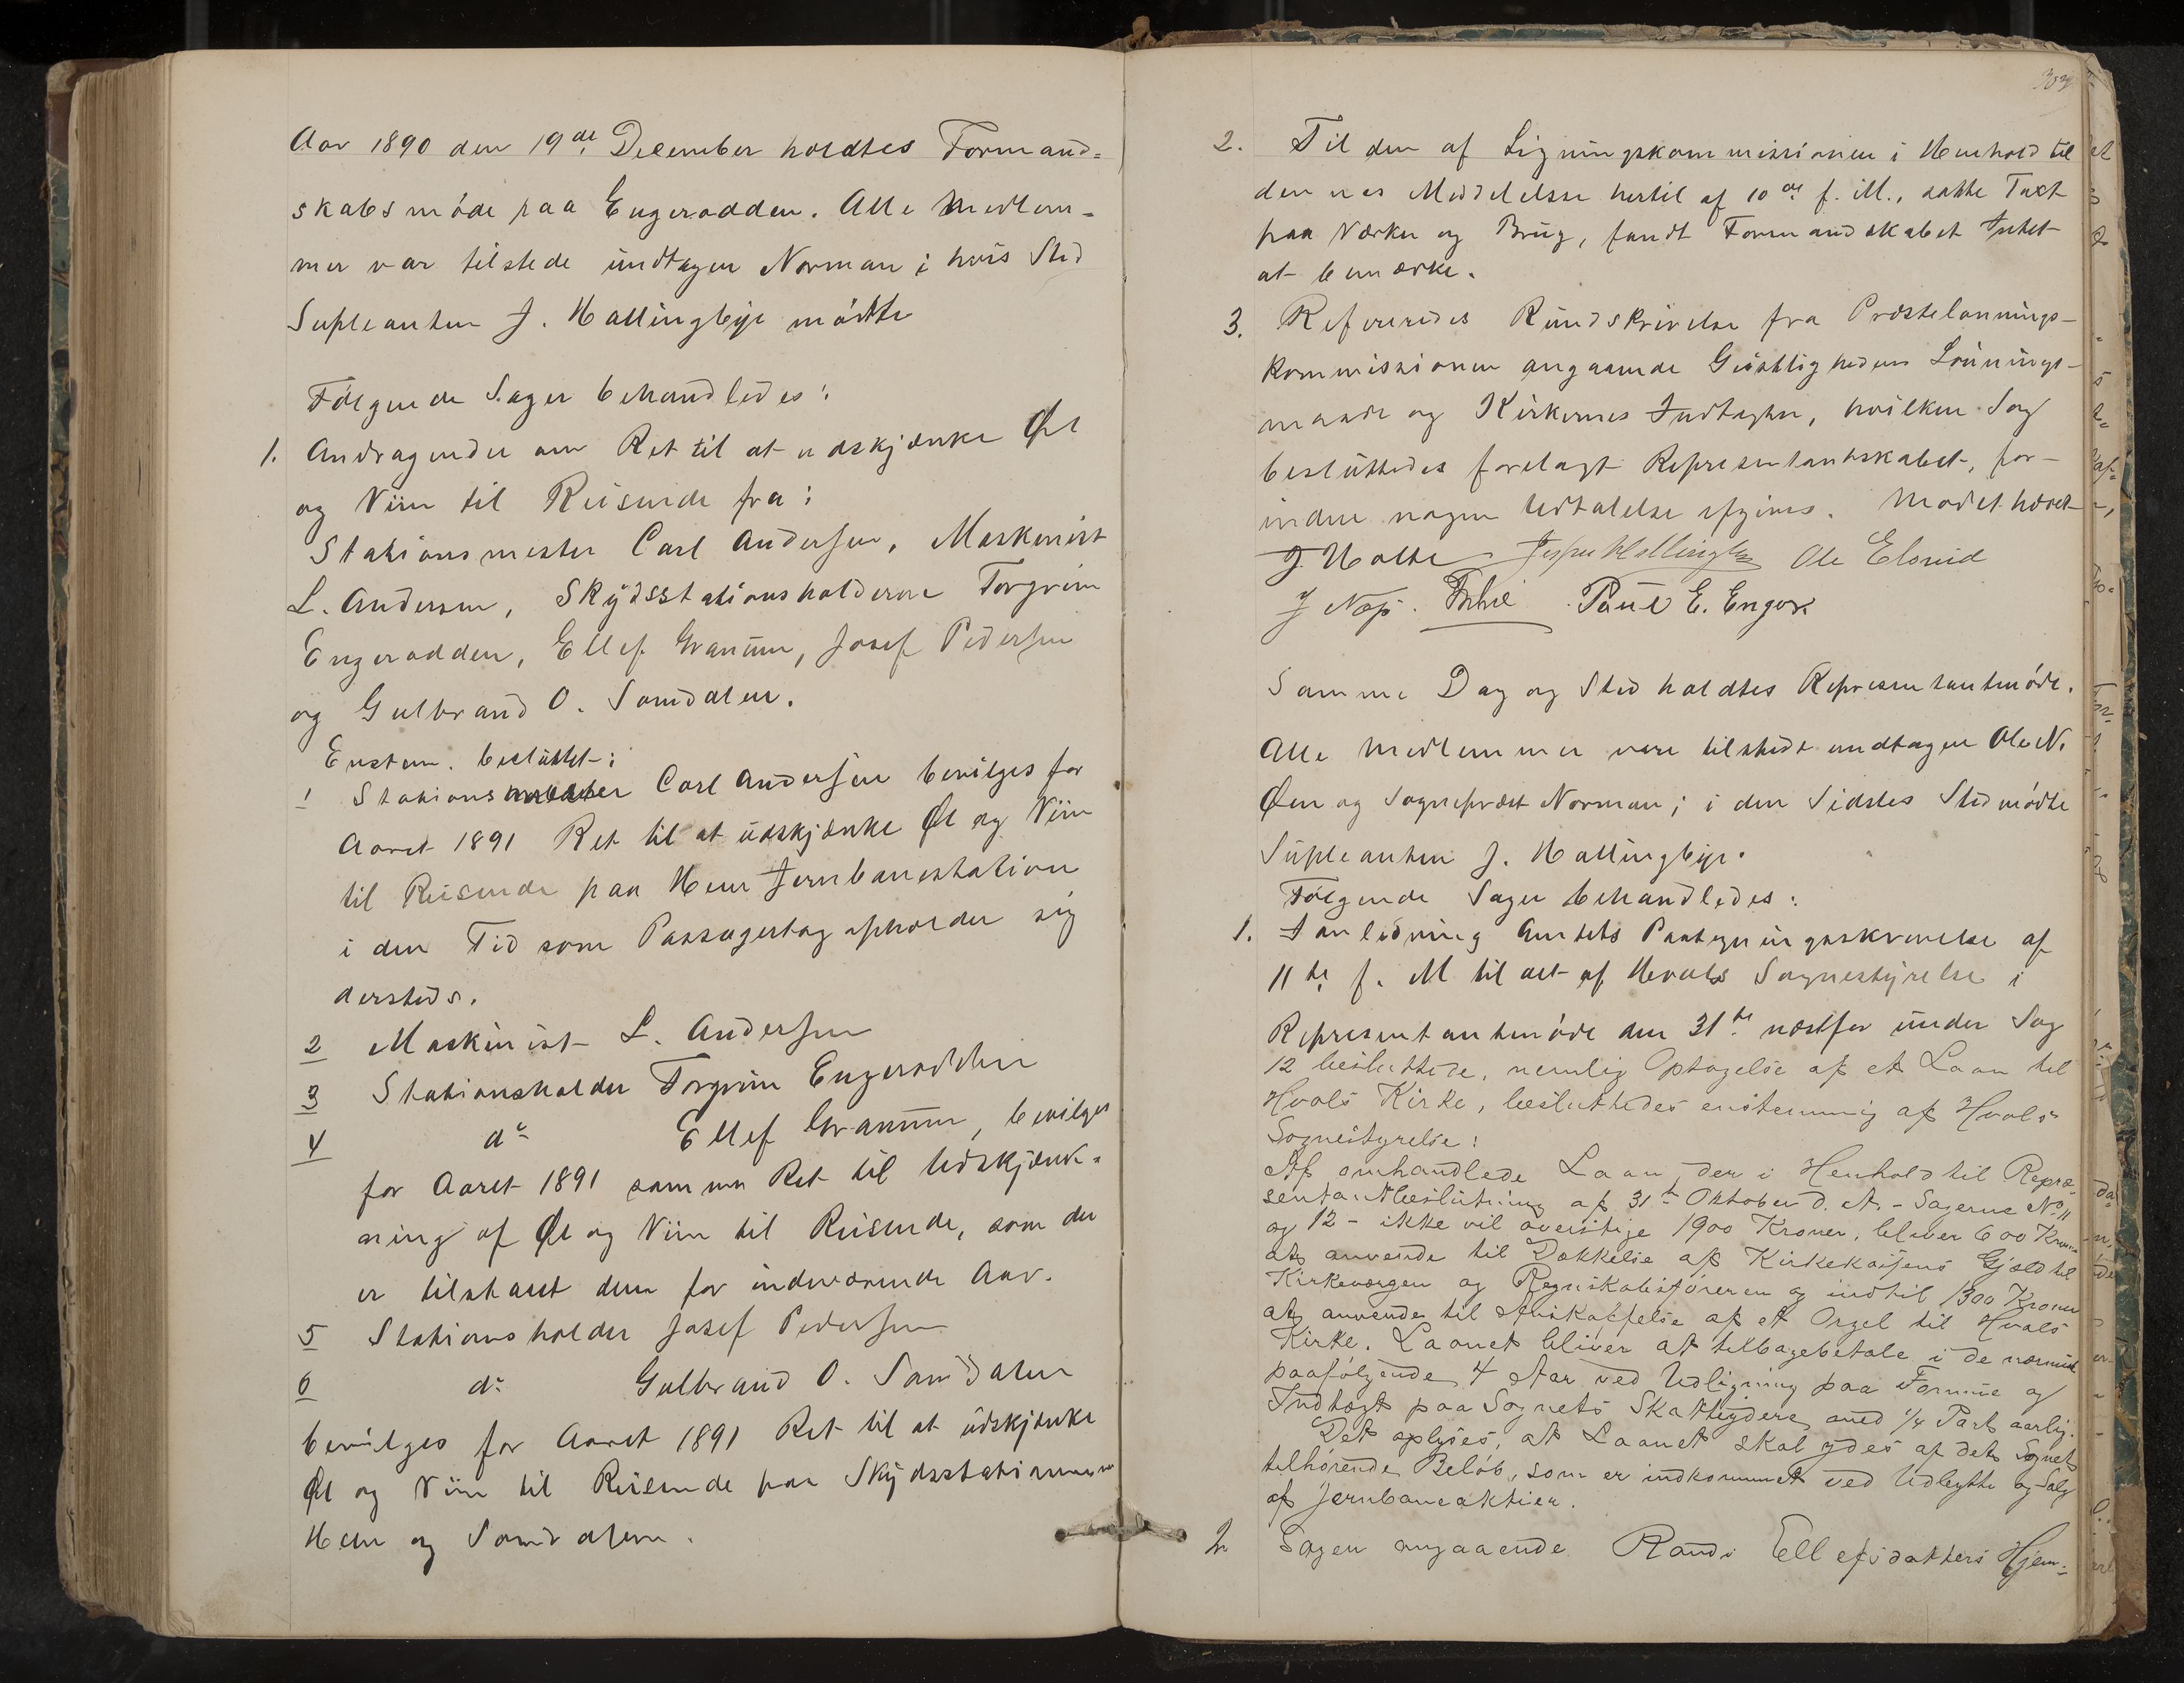 Aar 1890 den 19de December holdtes Formand=
skabsmöde paa Engerodden. Alle Medlem-
mer var tilstede undtagen Norman i hvis Sted
Supleanten J. Hallingbye mödte
Fölgende Sager behandledes:
1. Andragender om Ret til at udskjænke Øl
og Viin til Reisende fra:
Stationsmester Carl Andersen, Maskinist
L. Andersen, Skydsstationsholderne Torgrim
Engerodden, Ellef Granum, Josef Pedersen
og Gulbrand O. Somdalen.
Enstem. besluttet:
1 Stationsmester Carl Andersen bevilges for
Aaret 1891 Ret til at udskjænke Øl og Viin
til Reisende paa Heen Jernbanestation
i den Tid som Passagertog opholder sig
dersteds.
2 Maskinist L. Andersen
3 Stationsholder Torgrim Engerodden
4 do Ellef Granum, bevilges
for Aaret 1891 samme Ret til Udskjænk=
ning af Øl og Viin til Reisende, som der
er tilstaaet dem for indeværende Aar.
5 Stationsholder Josef Pedersen
6 do Gulbrand O. Somdalen
bevilges for Aaret 1891 Ret til at udskjænke
Øl og Viin til Reisende paa Skydsstationerne
Heen og Somdalen.
2. Til den af Ligningskommissionen i Henhold til
dennes Meddelelse hertil af 10de f. M., satte Taxt
paa Værker og Brug, fandt Formandskabet Intet
at bemærke.
3. Refereredes Rundskrivelse fra Præstelønnings-
kommissionen angaaende Geistlighedens Lönnings-
maade og Kirkernes Indtægter, hvilken Sag
besluttedes forelagt Representantskabet, for-
inden nogen Udtalelse afgives. Mødet hævet
J. Holte Jesper Hallingby Ole Elsrud
J Næs. Paul E. Enger.
Samme Dag og Sted holdtes Representantmöde.
Alle Medlemmer vare tilstede undtagen Ole N.
Øen og Sogneprest Norman; i den Sidstes Sted mödte
Supleanten J. Hallingbye.
Fölgende Sager behandledes:
1. I anledning Amtets Paategningsskrivelse af
11te f. M til det af Hvals Sognestyrelse i
Representantmöde den 31te næstfor under Sag
12 besluttede, nemlig Optagelse af et Laan til
Hvals Kirke, besluttedes enstemmig af Hvals
Sognestyrelse:
Af omhandlede Laan, der i Henhold til Repræ-
sentantbeslutning af 31te Oktober d. A. - Sagerne No 11
og 12 - ikke vil overstige 1900 Kroner, bliver 600 Kroner
at anvende til Dækkelse af Kirkekassens Gjæld til
Kirkeværgen og Regnskabsföreren og indtil 1300 Kroner
at anvende til Anskaffelse af et Orgel til Hvals
Kirke. Laanet bliver at tilbagebetale i de nærmest
paafölgende 4 Aar ved Udligning paa Formue og
Indtægt paa Sognets Skatteydere med 1/4 Part aarlig.
Det oplyses, at Laanet skal ydes af det Sognet
tilhörende Belöb, som er indkommet ved Udbytte og Salg
af Jernbaneaktier.
2. Sagen angaaende Randi Ellefsdatters Hjem-